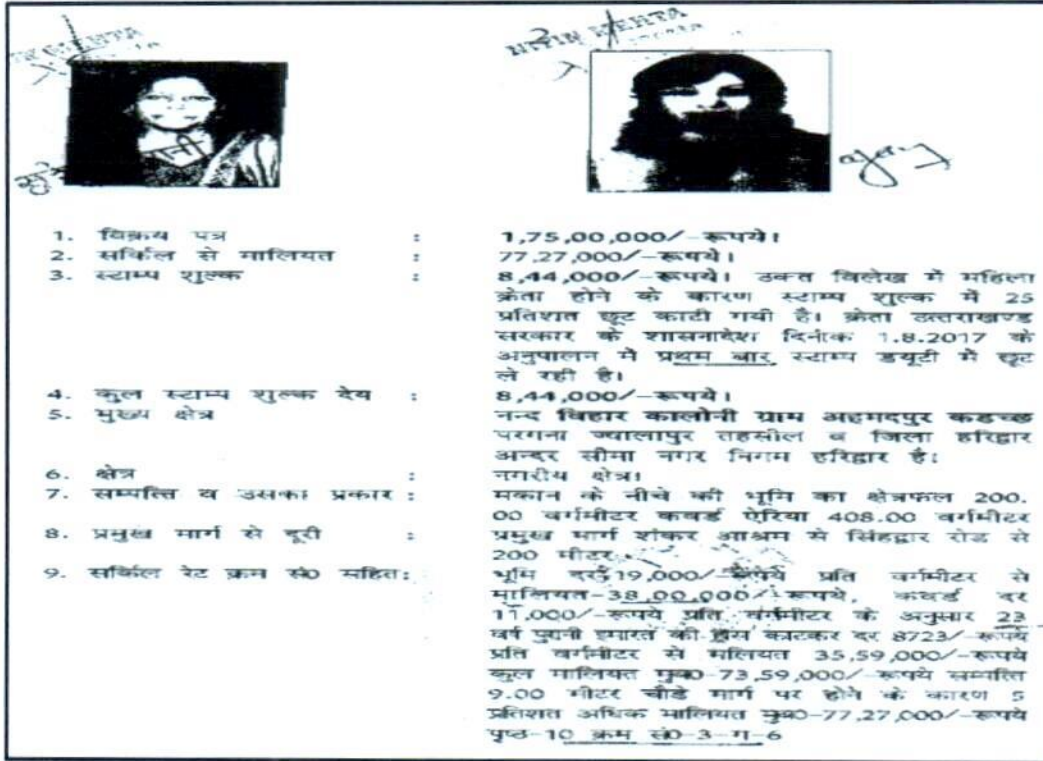 NITIN MEHTA
रानी
1. विक्रय पत्र : 1,75,00,000/-रूपये।
2. सर्किल से मालियत : 77,27,000/-रूपये।
3. स्टाम्प शुल्क : 8,44,000/-रूपये। उक्त विलेख में महिला
क्रेता होने के कारण स्टाम्प शुल्क में 25
प्रतिशत छूट काटी गयी है। क्रेता उत्तराखण्ड
सरकार के शासनादेश दिनांक 1.8.2017 के
अनुपालन में प्रथम बार स्टाम्प डयूटी में छूट
ले रही है।
4. कुल स्टाम्प शुल्क देय : 8,44,000/-रूपये।
5. मुख्य क्षेत्र नन्द विहार कालोनी ग्राम अहमदपुर कडच्छ
परगना ज्वालापुर तहसील व जिला हरिद्वार
अन्दर सीमा नगर निगम हरिद्वार है।
6. क्षेत्र : नगरीय क्षेत्र।
7. सम्पत्ति व उसका प्रकार : मकान के नीचे की भूमि का क्षेत्रफल 200.
00 वर्गमीटर कवर्ड ऐरिया 408.00 वर्गमीटर
8. प्रमुख मार्ग से दूरी : प्रमुख मार्ग शंकर आश्रम से सिंहद्वार रोड से
200 मीटर
9. सर्किल रेट क्रम सं0 सहित: भूमि दर 19,000/-रूपये प्रति वर्गमीटर से
मालियत-38,00,000/-रूपये, कवर्ड दर
11,000/-रूपये प्रति वर्गमीटर के अनुसार 23
वर्ष पुरानी इमारत की ह्रास काटकर दर 8723/-रूपये
प्रति वर्गमीटर से मलियत 35,59,000/-रूपये
कुल मालियत मुब0-73,59,000/-रूपये सम्पत्ति
9.00 मीटर चौडे मार्ग पर होने के कारण 5
प्रतिशत अधिक मालियत मुब0-77,27,000/-रूपये
पृष्ठ-10 क्रम सं0-3-ग-6